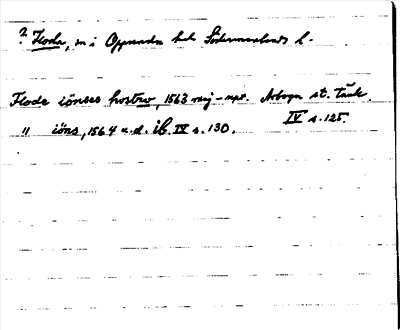 ? Floda, sn i Oppunda hd Södermanlands l.
Flode iönses hostrv, 1563 maj-nov. Arboga st. Tänk.
IV s. 125.
" iöns, 1564 u.d. ib. IV s. 130.